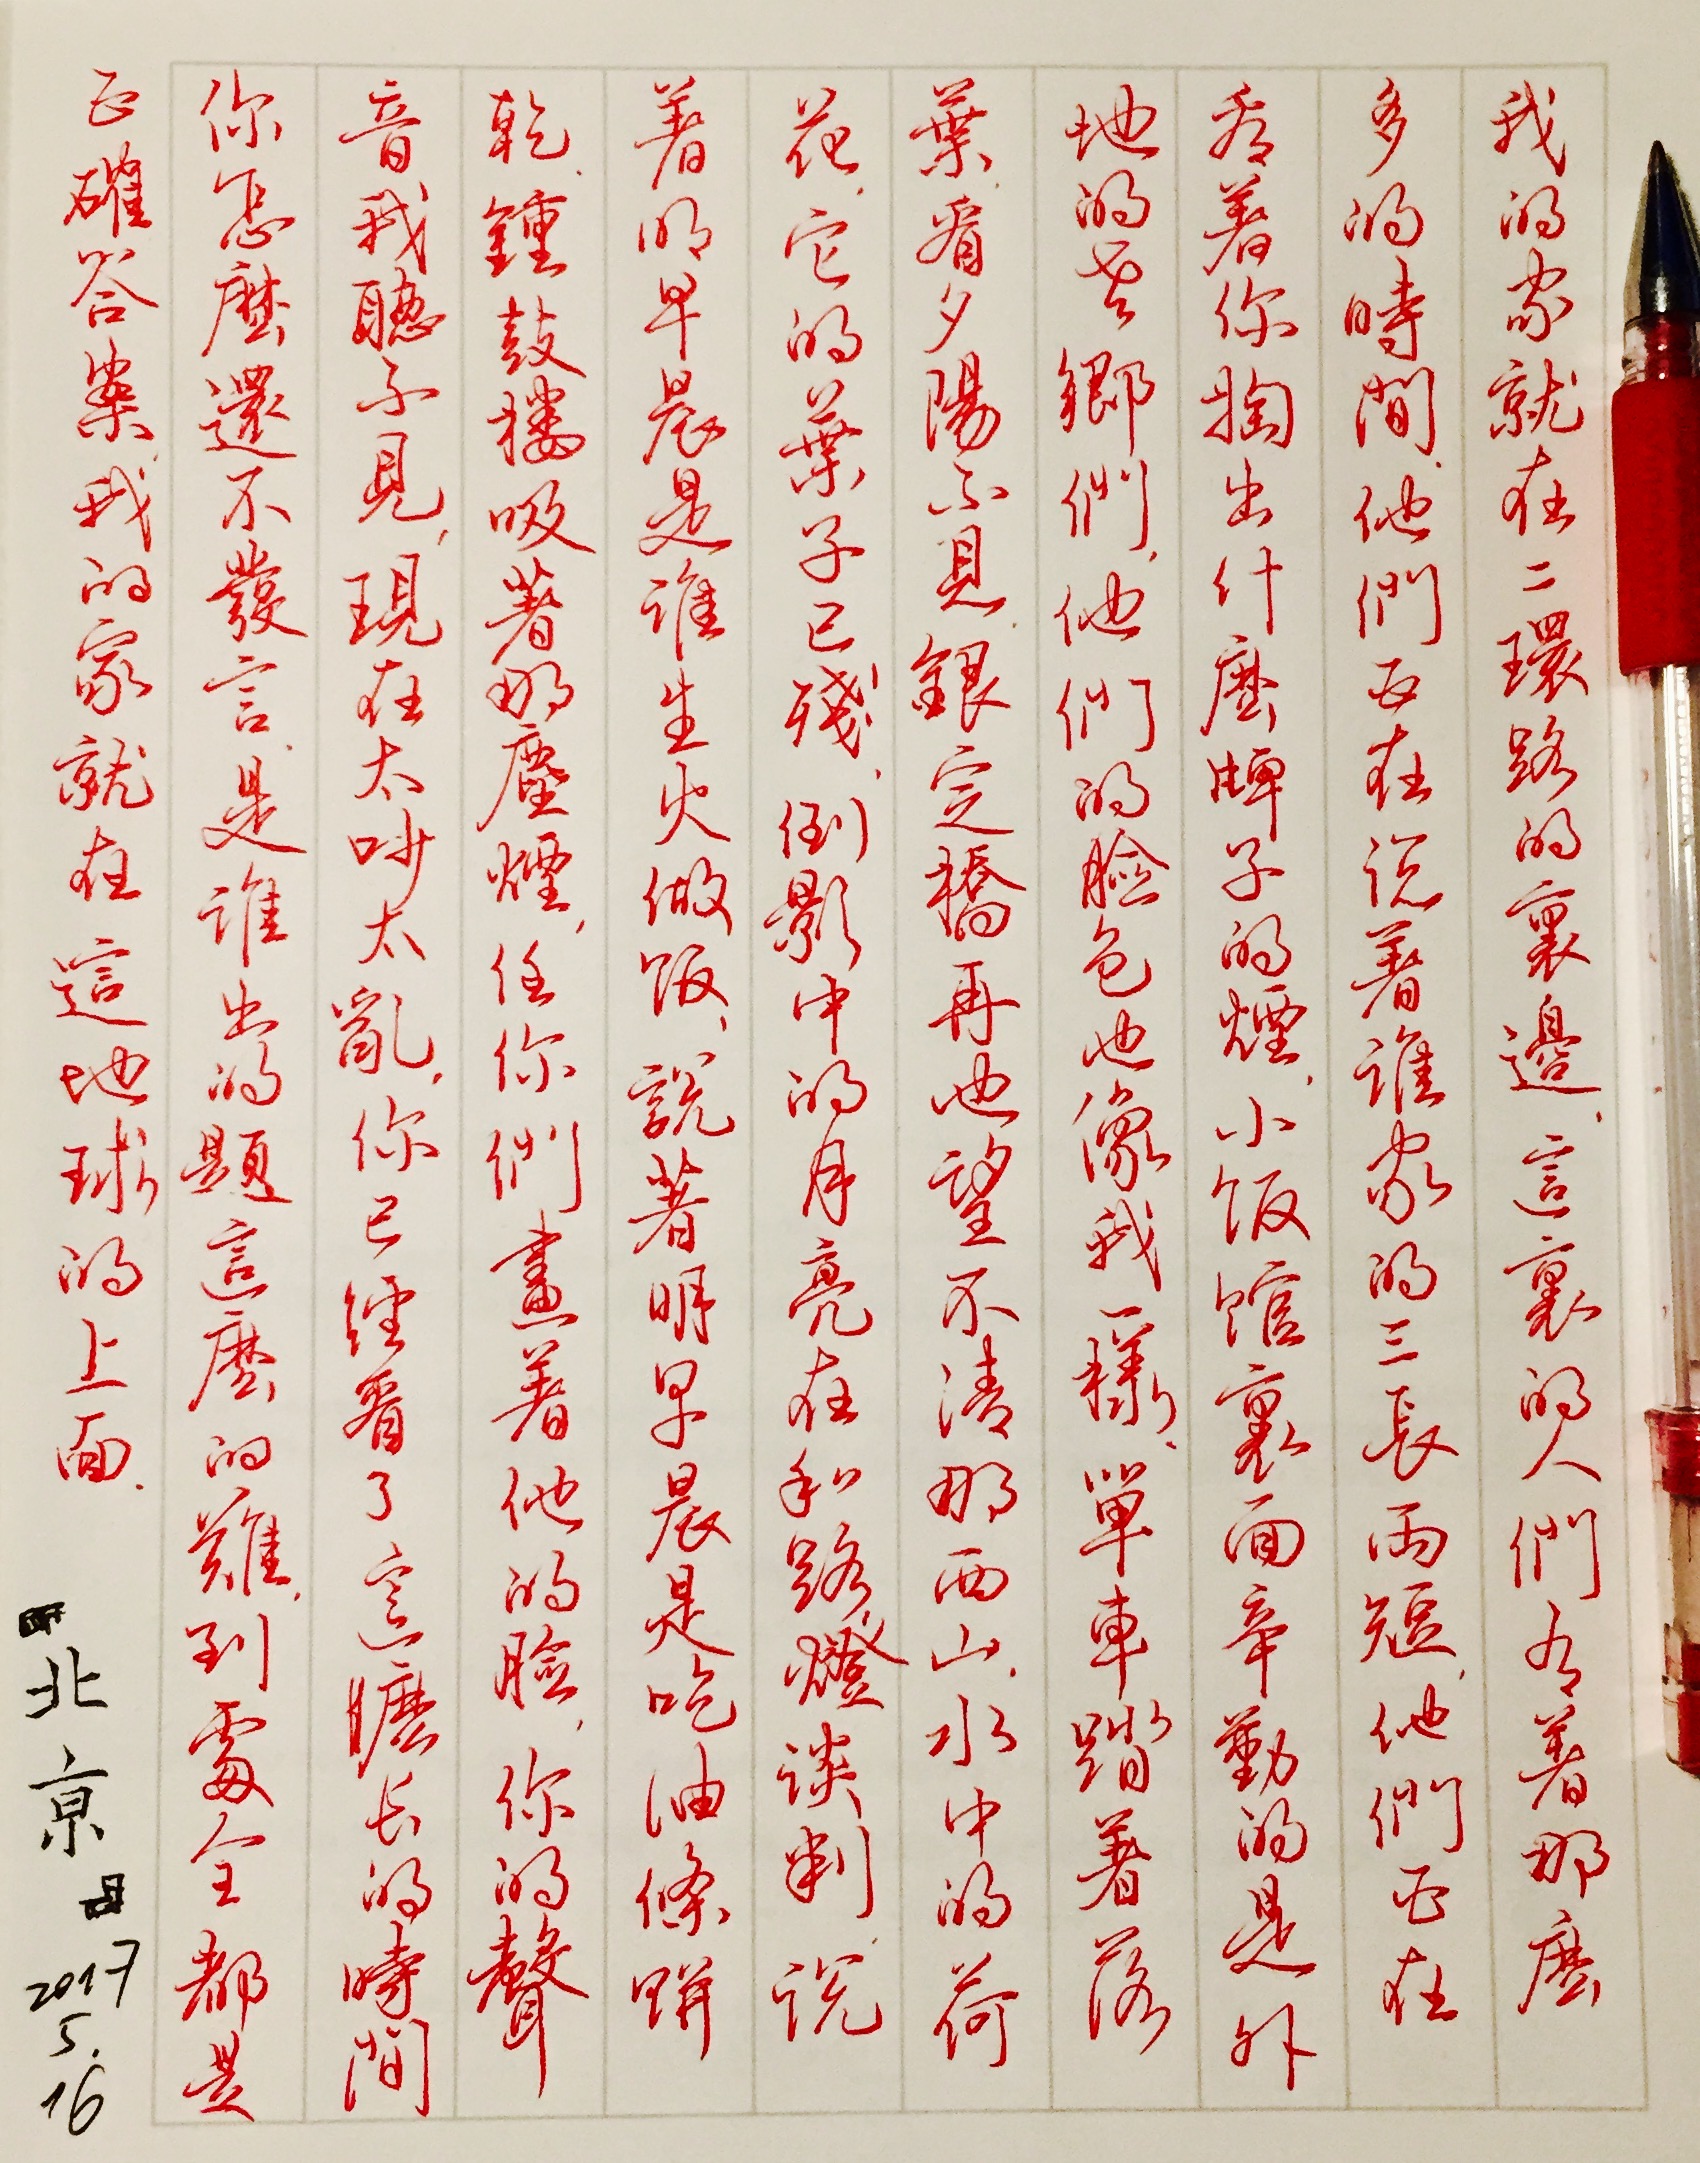 我的家就在二環路的裏邊，這裏的人們有着那麼
多的時間，他們正在说着谁家的三長兩短，他們正在
看着你掏出什麼牌子的煙，小饭馆裏面辛勤的是外
地的老鄉們，他們的臉色也像我一樣，單車踏着落
葉，看夕陽不見，銀定橋再也望不清那西山，水中的荷
花，它的葉子已殘，倒影中的月亮在和路燈谈判，说
着明早晨是谁生火做饭，說著明早晨是吃油條餅
乾，鍾鼓楼吸著那塵煙，任你們畫着他的臉，你的聲
音我聽不見，現在太吵太亂，你已經看了這麼长的時間
你怎麼還不發言，是谁出的題這麼的難，到處全都是
正確答案，我的家就在這地球的上面．
北京
2017
5.
16